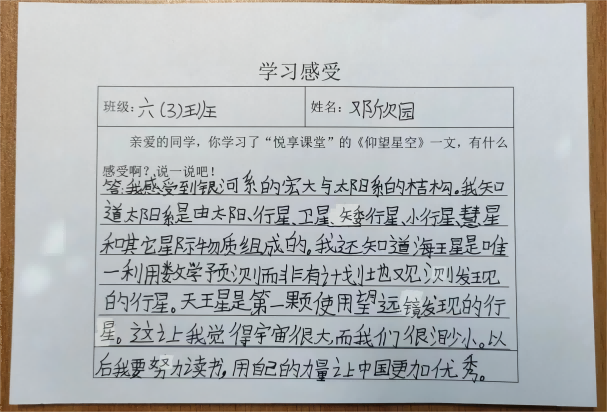 学习感受
班级：六(3)班 姓名：邓欣园
亲爱的同学，你学习了“悦享课堂”的《仰望星空》一文，有什么
感受啊？说一说吧！
答：我感受到银河系的宏大与太阳系的桔构。我知
道太阳系是由太阳、行星、卫星、矮行星、小行星、慧星
和其它星际物质组成的。我还知道海王星是唯
一利用数学予测而非有计划地观测发现
的行星。天王星是第一颗使用望远镜发现的行
星。这让我觉得宇宙很大，而我们很渺小。以
后我要努力读书，用自己的力量让中国更加优秀。